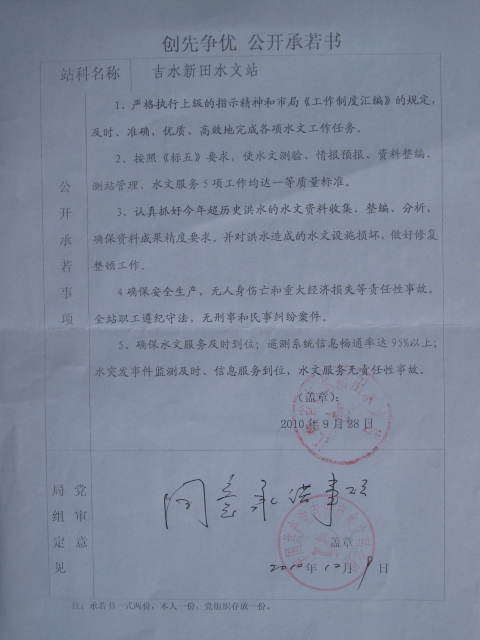 创先争优 公开承若书
站科名称 吉水新田水文站
公开承若事项
1、严格执行上级的指示精神和市局《工作制度汇编》的规定,
及时、准确,优质、高效地完成各项水文工作任务。
2、按照《标五》要求,使水文测验、情报预报、资料整编、
测站管理、水文服务5项工作均达一等质量标准。
3、认真抓好今年超历史洪水的水文资料收集、整编、分析,
确保资料成果精度要求。并对洪水造成的水文设施损坏,做好修复
整顿工作。
4确保安全生产,无人身伤亡和重大经济损失等责任性事故。
全站职工遵纪守法,无刑事和民事纠纷案件。
5、确保水文服务及时到位;遥测系统信息畅通率达95%以上;
水突发事件监测及时、信息服务到位,水文服务无责任性事故。
(盖章):
2010年9月28日
局党组审定意见
同意承诺事项
盖章
2010年10月9日
注:承若书一式两份,本人一份,党组织存放一份。